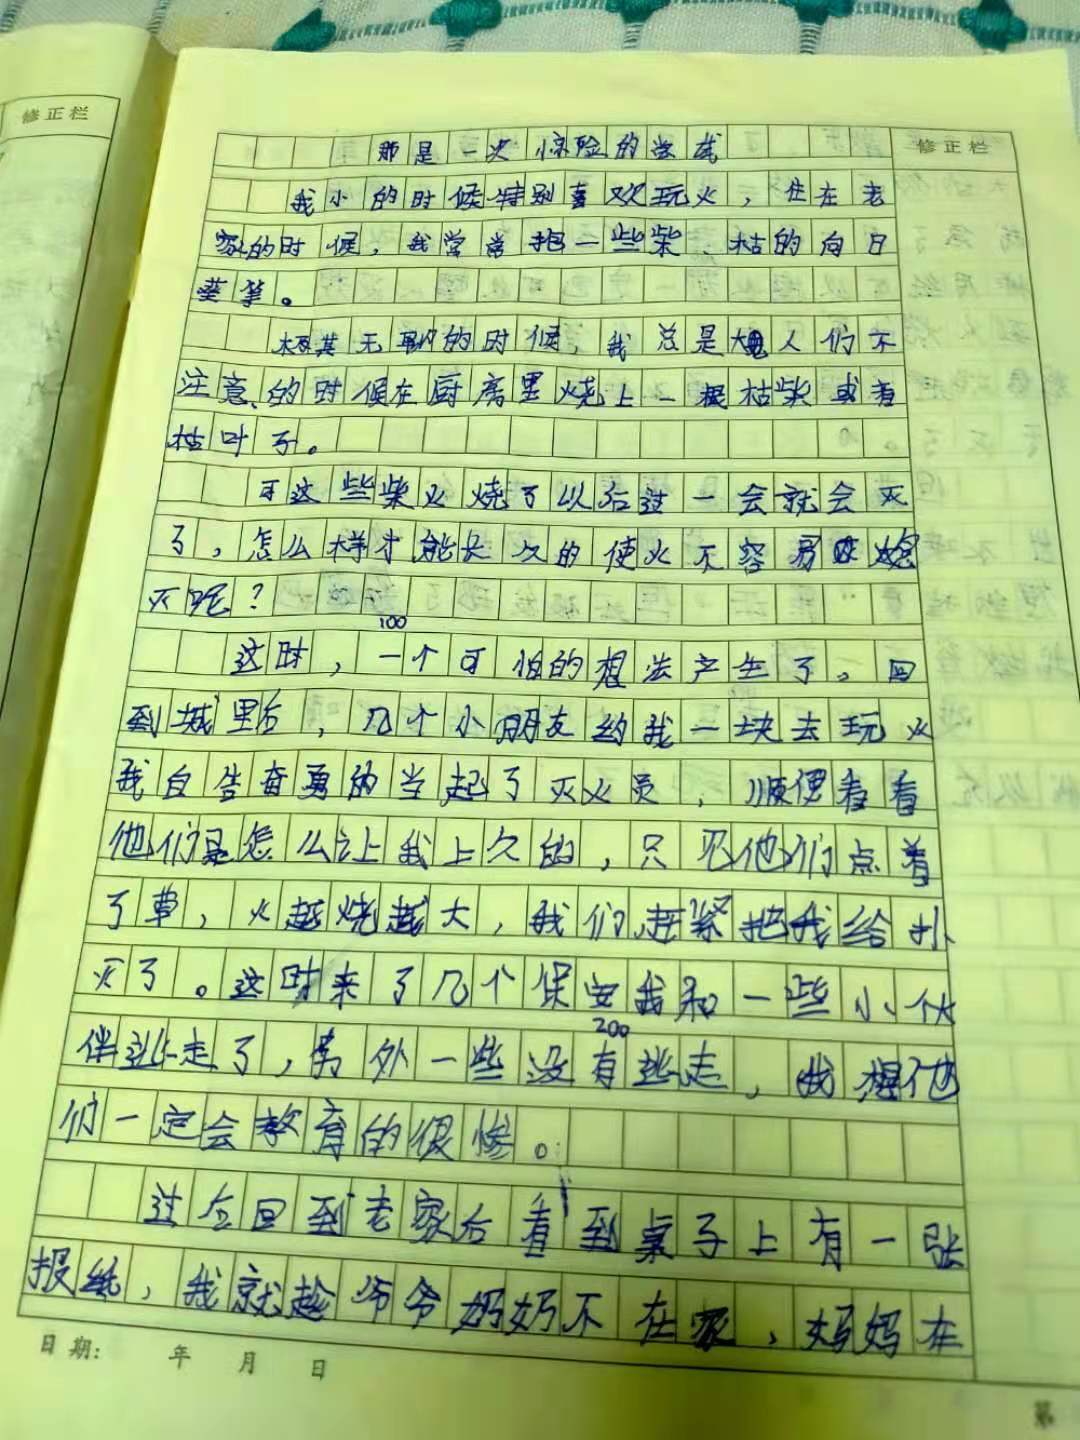 修正栏
修正栏
那是一次惊险的尝试
我小的时候特别喜欢玩火，住在老
家的时候，我常常抱一些柴、枯的向日
葵等。
极其无聊的时候，我总是大人们不
注意的时候在厨房里烧上一根枯柴或者
枯叶子。
可这些柴火烧了以后过一会就会灭
了，怎么样才能长久的使火不容易熄
灭呢？
100
这时，一个可怕的想法产生了。回
到城里后，几个小朋友约我一块去玩火
我自告奋勇的当起了灭火员，顺便看看
他们是怎么让我上久的，只见他们点着
了草，火越烧越大，我们赶紧把我给扑
灭了。这时来了几个保安我和一些小伙
200
伴逃走了，另外一些没有逃走，我想他
们一定会教育的很惨。
过年回到老家后看到桌子上有一张
报纸，我就趁爷爷奶奶不在家，妈妈在
日期： 年 月 日
第